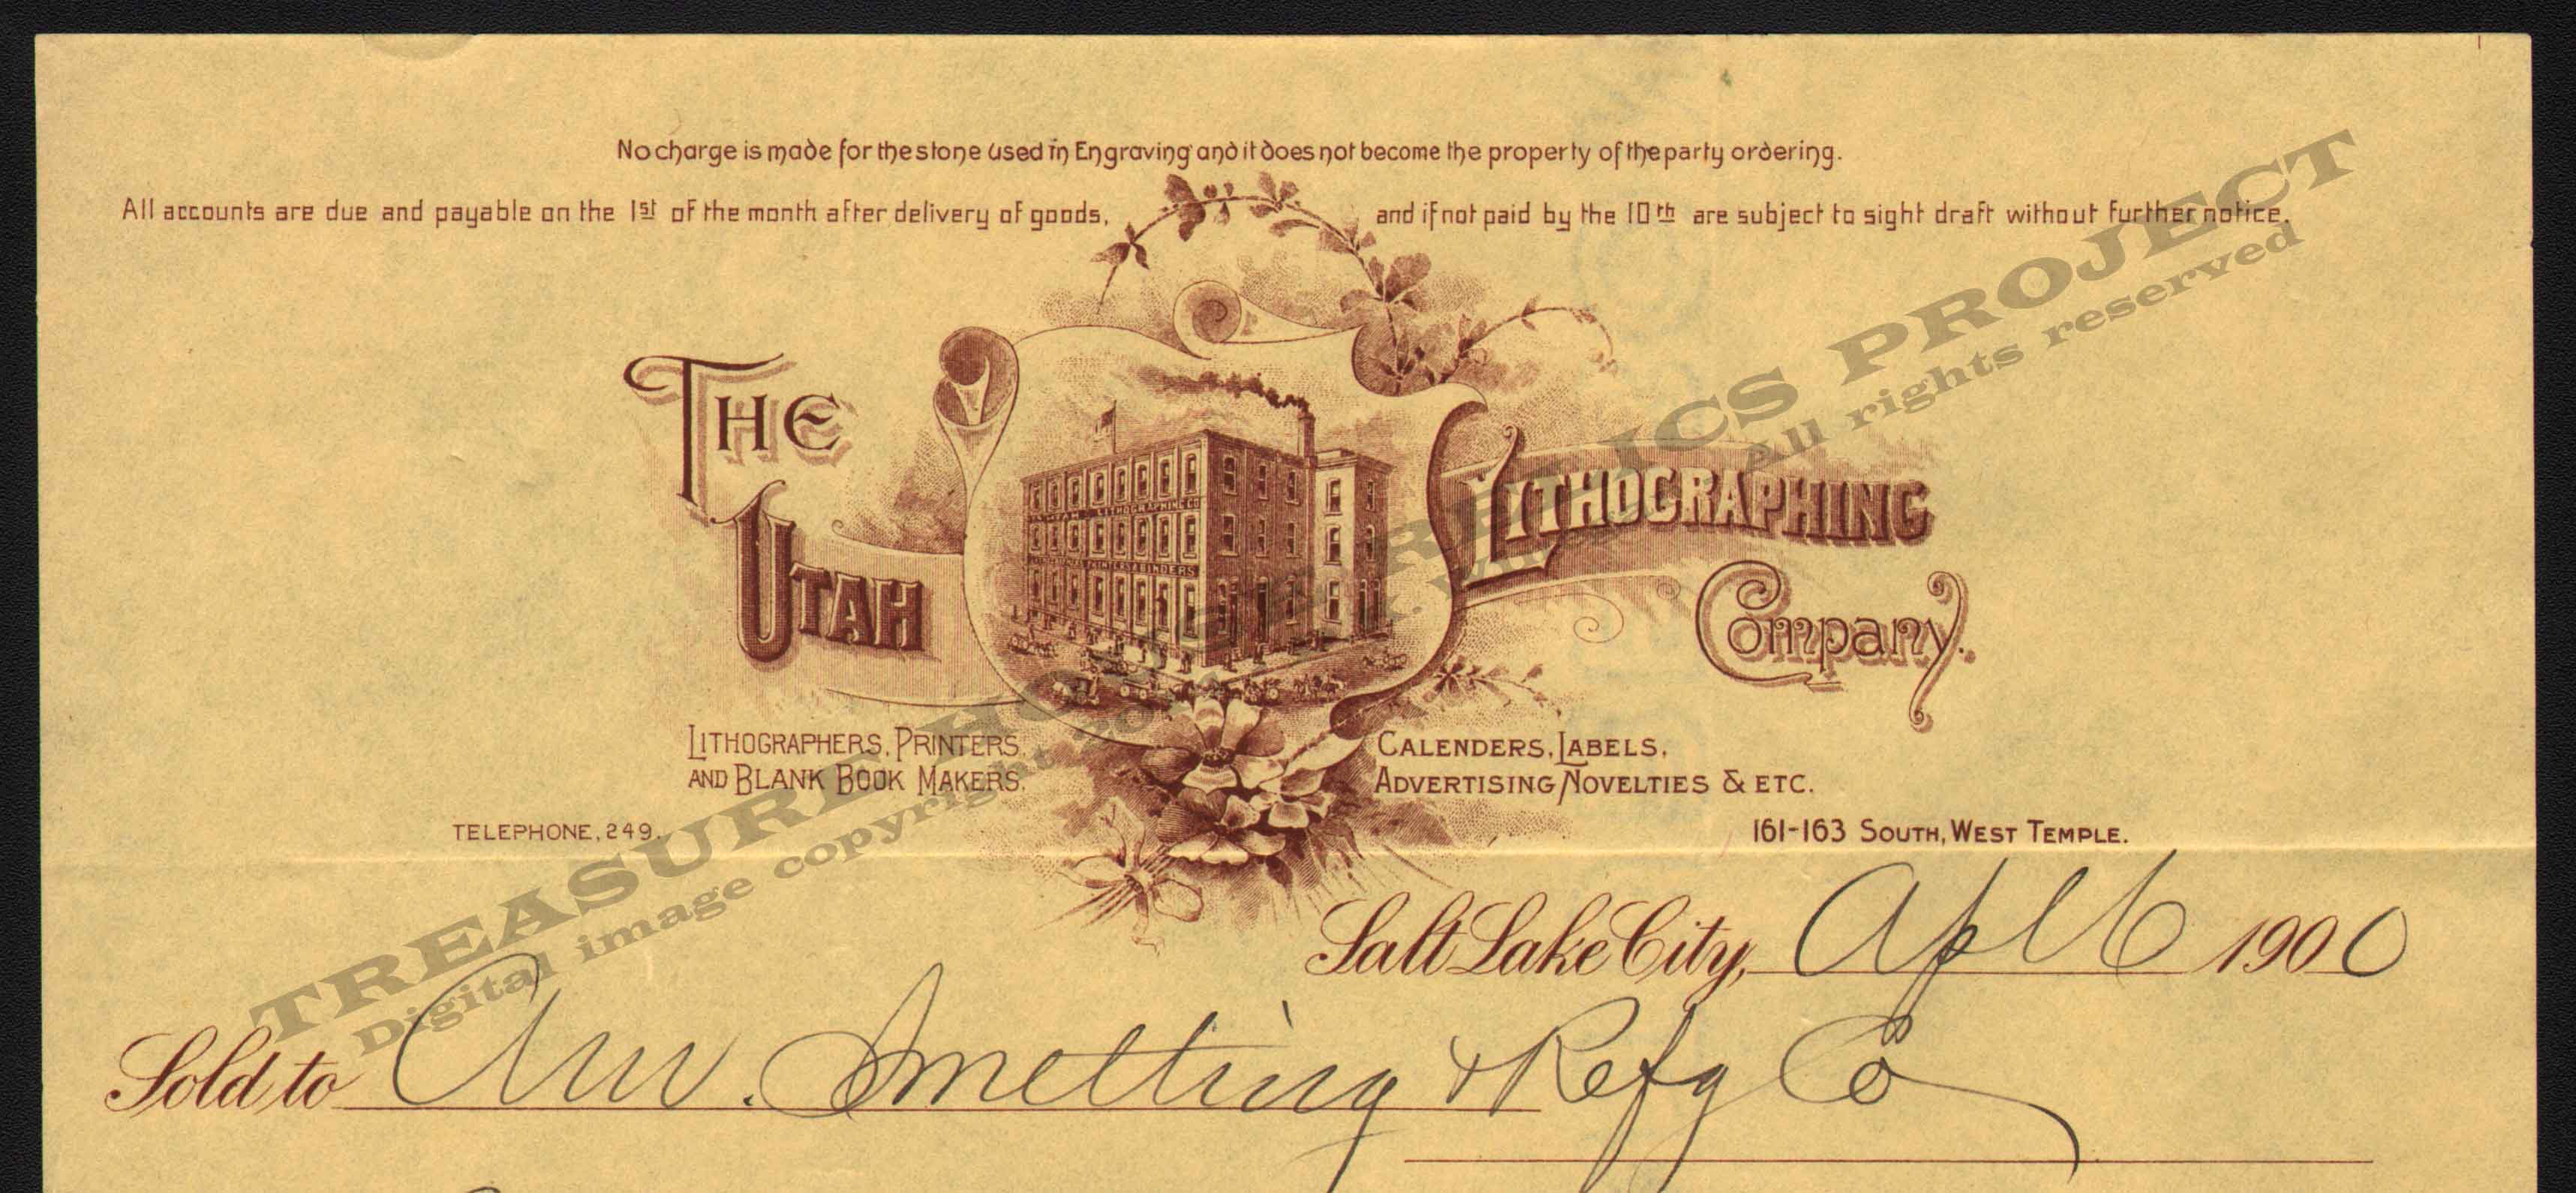 No charge is made for the stone used in Engraving and it does not become the property of the party ordering.
All accounts are due and payable on the 1st of the month after delivery of goods, and if not paid by the 10th are subject to sight draft without further notice.
THE
UTAH
LITHOGRAPHING
Company.
LITHOGRAPHING CO
PRINTERS & BINDERS
LITHOGRAPHERS, PRINTERS,
AND BLANK BOOK MAKERS.
CALENDERS, LABELS,
ADVERTISING NOVELTIES & ETC.
TELEPHONE, 249.
161-163 SOUTH, WEST TEMPLE.
Salt Lake City, Apl 6 1900
Sold to Am. Smelting & Refg Co
TREASURE HOUSE RELICS PROJECT
Digital image copyright All rights reserved